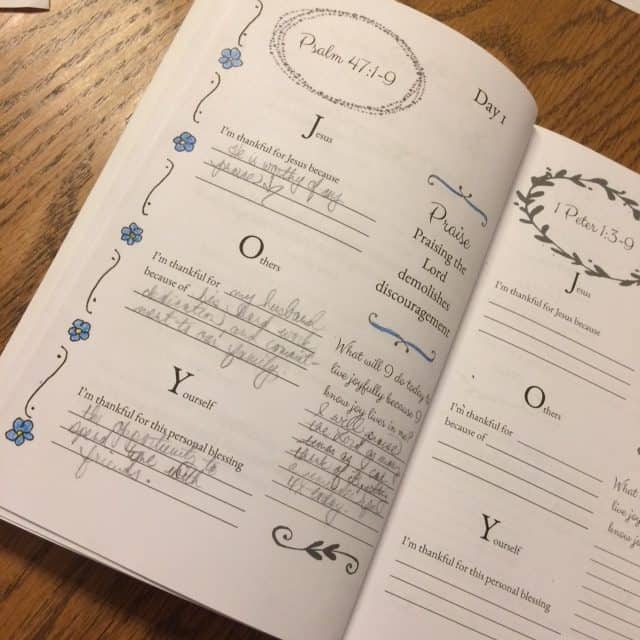 Psalm 47:1-9
Day 1
Jesus
I'm thankful for Jesus because
He is worthy of my
praise
Others
I'm thankful for my husband
because of his hard work
dedication, and commit-
ment to our family.
Yourself
I'm thankful for this personal blessing
the opportunity to
spend time with
friends.
Praise
Praising the
Lord
demolishes
discouragement
What will I do today to
live joyfully because I
know joy lives in me?
I will praise
today
1 Peter 1:3-9
Jesus
I'm thankful for Jesus because
Others
I'm thankful for
because of
Yourself
I'm thankful for this personal blessing
What
live joy
know jo